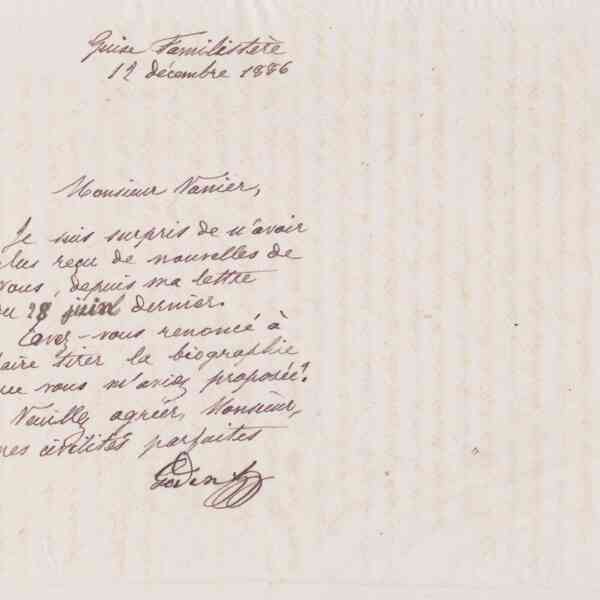 Guise Familistère
12 décembre 1886
Monsieur Vanier,
Je suis surpris de n'avoir
plus reçu de nouvelles de
vous, depuis ma lettre
du 28 juin dernier.
avez-vous renoncé à
faire tirer la biographie
que vous m'aviez proposée?
Veuillez agréer, Monsieur,
mes civilités parfaites
Godin